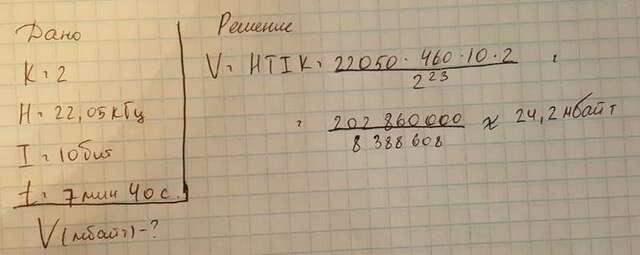 Дано
K = 2
H = 22,05 кГц
I = 10 бит
t = 7 мин 40 с.
V (мбайт) - ?
Решение
V = HTIK = 22050 · 460 · 10 · 2 / 2^23 =
= 202 860 000 / 8 388 608 ≈ 24,2 мбайт